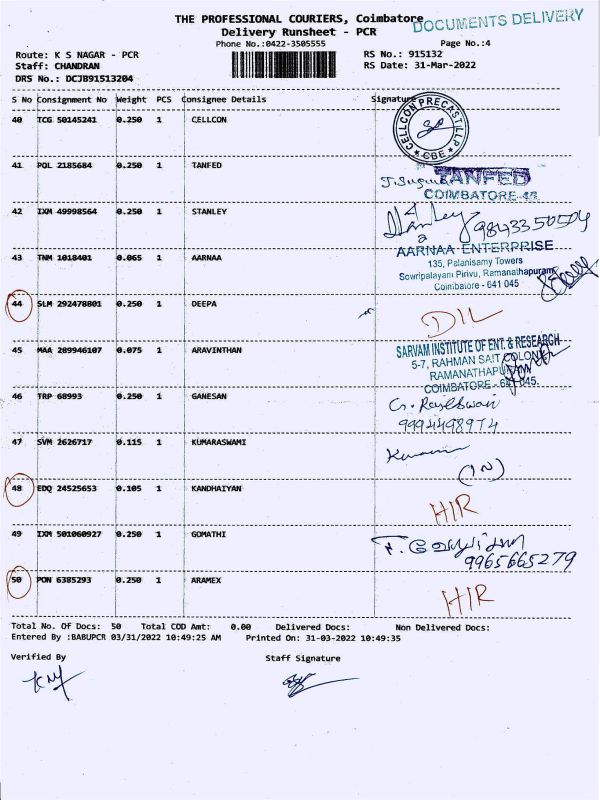 THE PROFESSIONAL COURIERS, Coimbatore
DOCUMENTS DELIVERY
Delivery Runsheet - PCR
Phone No.:0422-3505555
Page No.:4
Route: K S NAGAR - PCR
RS No.: 915132
Staff: CHANDRAN
RS Date: 31-Mar-2022
DRS No.: DCJB91513204
S No Consignment No Weight PCS Consignee Details Signature
40 TCG 50145241 0.250 1 CELLCON
CELLCON PRECAST LLP
* CBE *
41 POL 2185684 0.250 1 TANFED
TANFED
COIMBATORE-45
42 IXM 49998564 0.250 1 STANLEY
Stanley
9843350504
43 TNM 1018401 0.065 1 AARNAA
AARNAA ENTERPRISE
135, Palanisamy Towers
Sowripalayam Pirivu, Ramanathapuram
Coimbatore - 641 045
44 SLM 292478801 0.250 1 DEEPA
DIL
45 MAA 289946107 0.075 1 ARAVINTHAN
SARVAM INSTITUTE OF ENT. & RESEARCH
5-7, RAHMAN SAIT COLONY
RAMANATHAPURAM
COIMBATORE - 641 045.
46 TRP 68993 0.250 1 GANESAN
9994498974
47 SVM 2626717 0.115 1 KUMARASWAMI
(IN)
48 EDQ 24525653 0.105 1 KANDHAIYAN
HIR
49 IXM 501060927 0.250 1 GOMATHI
9965665279
50 PON 6385293 0.250 1 ARAMEX
HIR
Total No. Of Docs: 50 Total COD Amt: 0.00 Delivered Docs: Non Delivered Docs:
Entered By :BABUPCR 03/31/2022 10:49:25 AM Printed On: 31-03-2022 10:49:35
Verified By Staff Signature